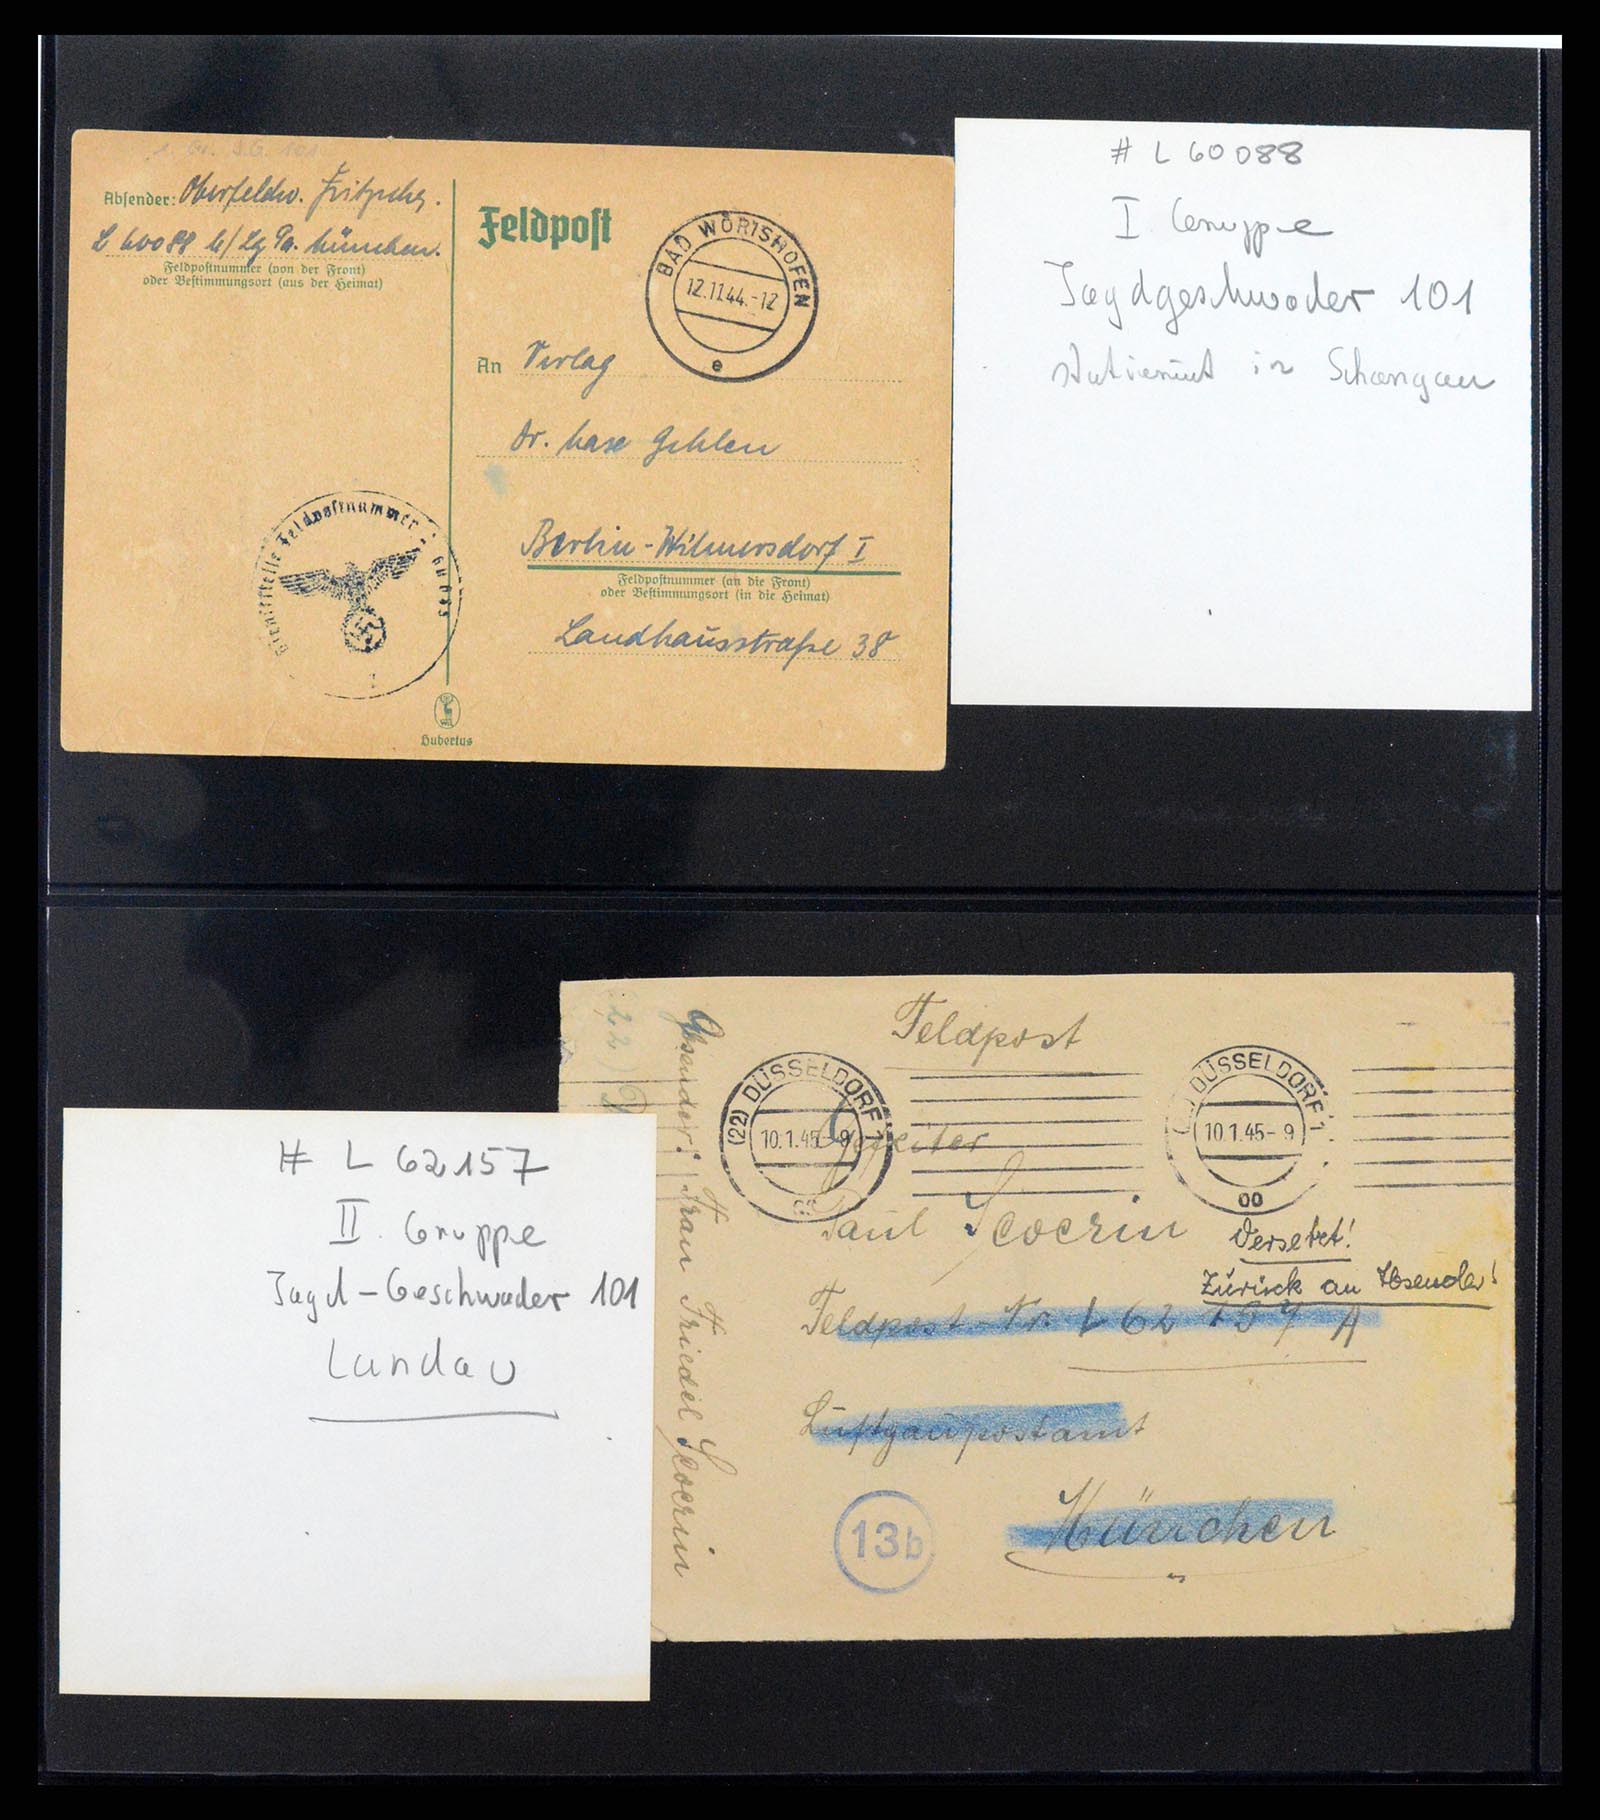 1. Gr. J.G. 101
Absender: Oberfeldw.
L 60088 b/Lg Pa. München.
Feldpostnummer (von der Front)
oder Bestimmungsort (aus der Heimat)
Feldpost
BAD WÖRISHOFEN
12.11.44.-12
e
An Verlag
Dr. Gehlen
Berlin-Wilmersdorf I
Feldpostnummer (an die Front)
oder Bestimmungsort (in die Heimat)
Landhausstraße 38
Dienststelle Feldpostnummer
Hubertus
# L 60088
I Gruppe
Jagdgeschwader 101
stationiert in Schongau
# L 62157
II. Gruppe
Jagd-Geschwader 101
Landau
Feldpost
(22) DÜSSELDORF 1
10.1.45-9
DÜSSELDORF 1
10.1.45-9
oo
Gefreiter
Paul
Versetzt!
Zurück an Absender!
Feldpost-Nr. L 62 157 A
Luftgaupostamt
München
13b
Absender: Frau Friedel
(22)